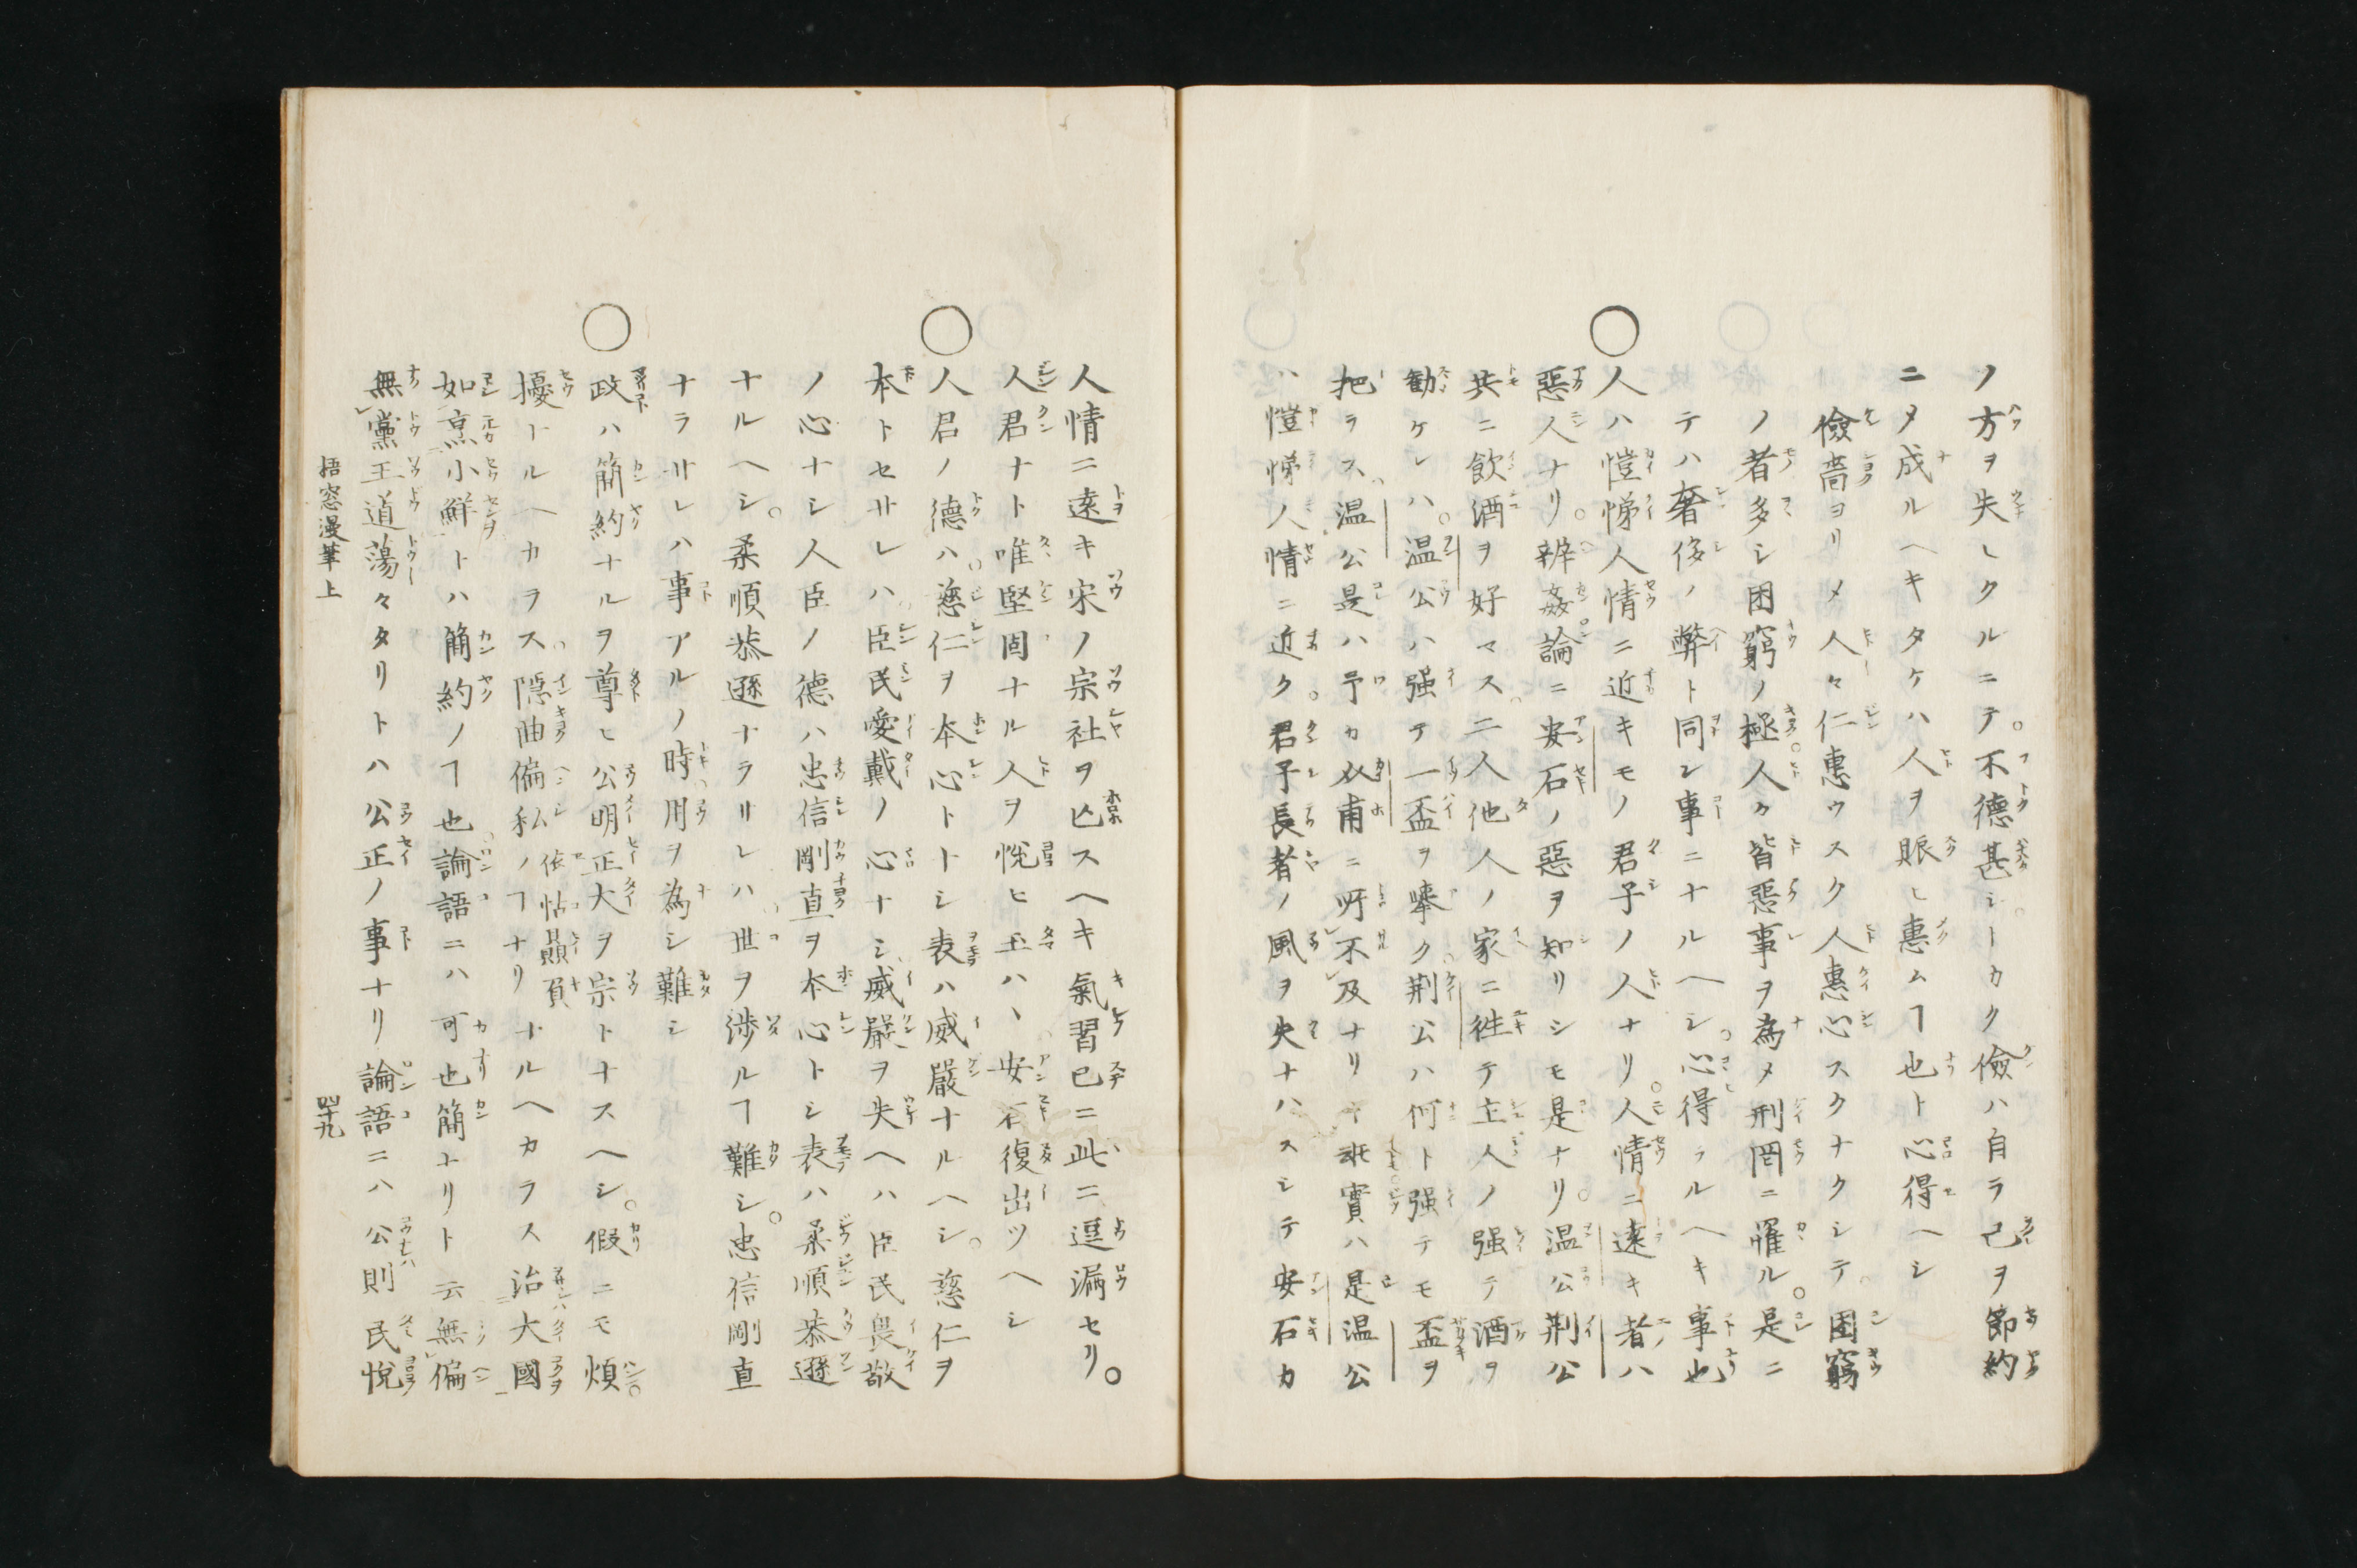 ノ方ヲ失しクルニテ。不德甚シ。ーカク儉ハ自ラ己ヲ節約
ニメ成ルヘキタケハ人ヲ賑ヒ惠ムヿ也ト心得ヘシ
儉嗇ヨリメ人々仁惠ウスク人惠心スクナクシテ。困窮
ノ者多シ困窮ノ極。人々皆惡事ヲ為メ刑罔ニ罹ル。是ニ
テハ奢侈ノ弊ト同シ事ニナルヘシ。心得ラルヘキ事也
○人ハ愷悌人情ニ近キモノ君子ノ人ナリ。人情ニ遠キ者ハ
惡人ナリ。辨姦論ニ安石ノ惡ヲ知リシモ是ナリ。温公荆公
共ニ飲酒ヲ好マス。二人他人ノ家ニ徃テ主人ノ强テ酒ヲ
勧ケレハ。温公ハ强テ一盃ヲ擧ク。荆公ハ何ト强テモ盃ヲ
把ラス。温公是ハ予カ以甫ニ所不及ナリ實ハ是温公
ハ愷悌人情ニ近ク。君子長者ノ風ヲ失ナハスシテ安石カ
人情ニ遠キ宋ノ宗社ヲ亾スヘキ氣習已ニ此ニ逗漏セリ。
人君ナト唯堅固ナル人ヲ悅ヒ玉ハヽ安石復出ツヘシ
○人君ノ德ハ。慈仁ヲ本心トトシ表ハ威嚴ナルヘシ。慈仁ヲ
本トセサレハ。臣民愛戴ノ心ナシ、威嚴ヲ失ヘハ臣民畏敬
ノ心ナシ人臣ノ德ハ忠信剛直ヲ本心トシ表ハ柔順恭遜
ナルヘシ。柔順恭遜ナラサレハ。世ヲ渉ルヿ難シ。忠信剛直
ナラサレハ事アルノ時。用ヲ為シ難シ
○政ハ簡約ナルヲ尊ヒ公明正大ヲ宗トナスヘシ。假ニモ煩
擾トルヘカラス。隠曲偏私ノヿナリナルヘカラス治大國
依怙贔負
如烹小鮮トハ簡約ノヿ也。論語ニハ可也簡ナリト云無偏
無黨王道蕩々タリトハ公正ノ事ナリ論語ニハ公則民悅
梧窓漫筆上
四十九